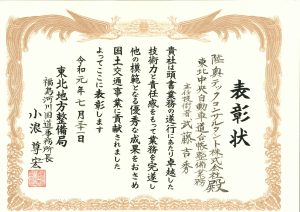 表彰状
陸奥テックコンサルタント株式会社殿
東北中央自動車道台帳整備業務
主任技術者 武藤吉秀
貴社は頭書業務の遂行にあたり卓越した
技術力と責任感をもって業務を完遂し
他の模範となる優秀な成果をおさめ
国土交通行政事業に貢献されました
よってここに表彰します
令和元年七月三十一日
東北地方整備局
福島河川国道事務所長
小浪尊宏